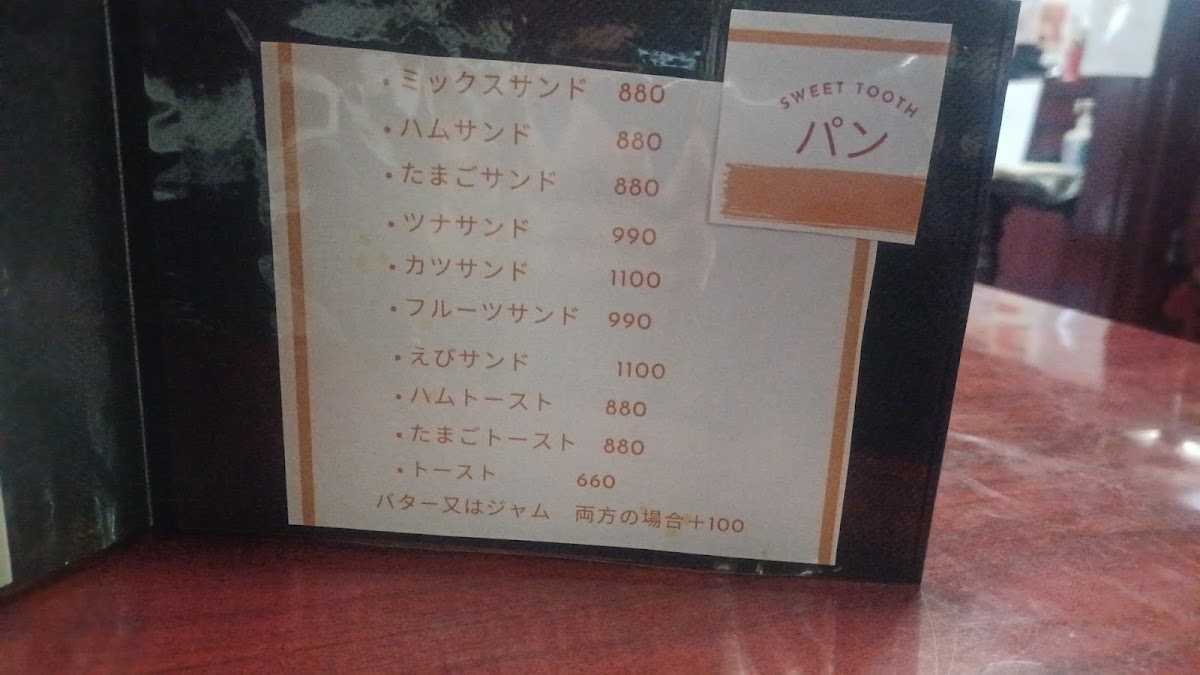 SWEET TOOTH
パン
・ミックスサンド 880
・ハムサンド 880
・たまごサンド 880
・ツナサンド 990
・カツサンド 1100
・フルーツサンド 990
・えびサンド 1100
・ハムトースト 880
・たまごトースト 880
・トースト 660
バター又はジャム 両方の場合+100